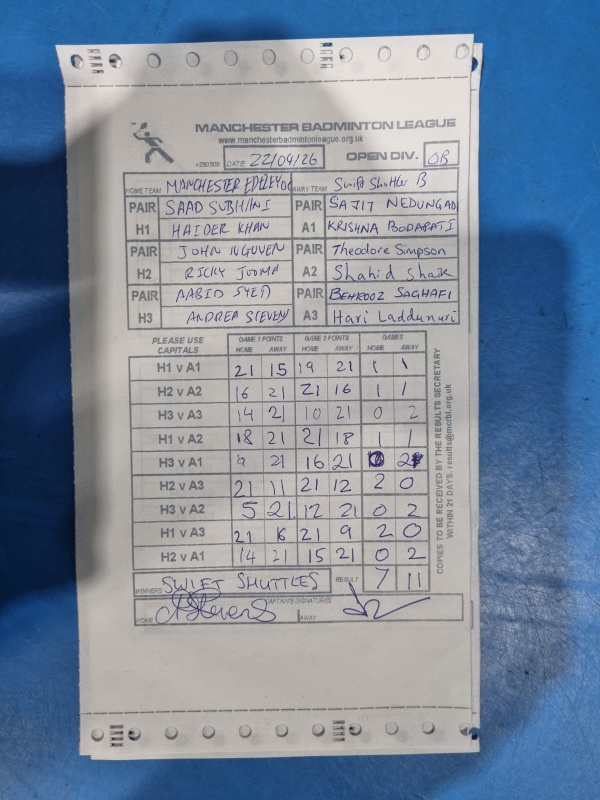 MANCHESTER BADMINTON LEAGUE
www.manchesterbadmintonleague.org.uk
DATE 22/04/26 OPEN DIV. OB
HOME TEAM MANCHESTER AWAY TEAM Swift Shuttles B
PAIR SAAD SUBHANI PAIR SAJIT NEDUNGADI
H1 HAIDER KHAN A1 KRISHNA BODAPATI
PAIR JOHN NGUYEN PAIR Theodore Simpson
H2 RICKY JOOMA A2 Shahid Shaik
PAIR NABID SYED PAIR BEHROOZ SAGHAFI
H3 ANDREA STEVENS A3 Hari Laddunuri
PLEASE USE CAPITALS GAME 1 POINTS GAME 2 POINTS GAMES
HOME AWAY HOME AWAY HOME AWAY
H1 v A1 21 15 19 21 1 1
H2 v A2 16 21 21 16 1 1
H3 v A3 14 21 10 21 0 2
H1 v A2 18 21 21 18 1 1
H3 v A1 9 21 16 21 0 2
H2 v A3 21 11 21 12 2 0
H3 v A2 5 21 12 21 0 2
H1 v A3 21 16 21 9 2 0
H2 v A1 14 21 15 21 0 2
WINNERS SWIFT SHUTTLES RESULT 7 11
CAPTAIN'S SIGNATURES
HOME AStevens AWAY
COPIES TO BE RECEIVED BY THE RESULTS SECRETARY
WITHIN 21 DAYS. results@mcrbl.org.uk